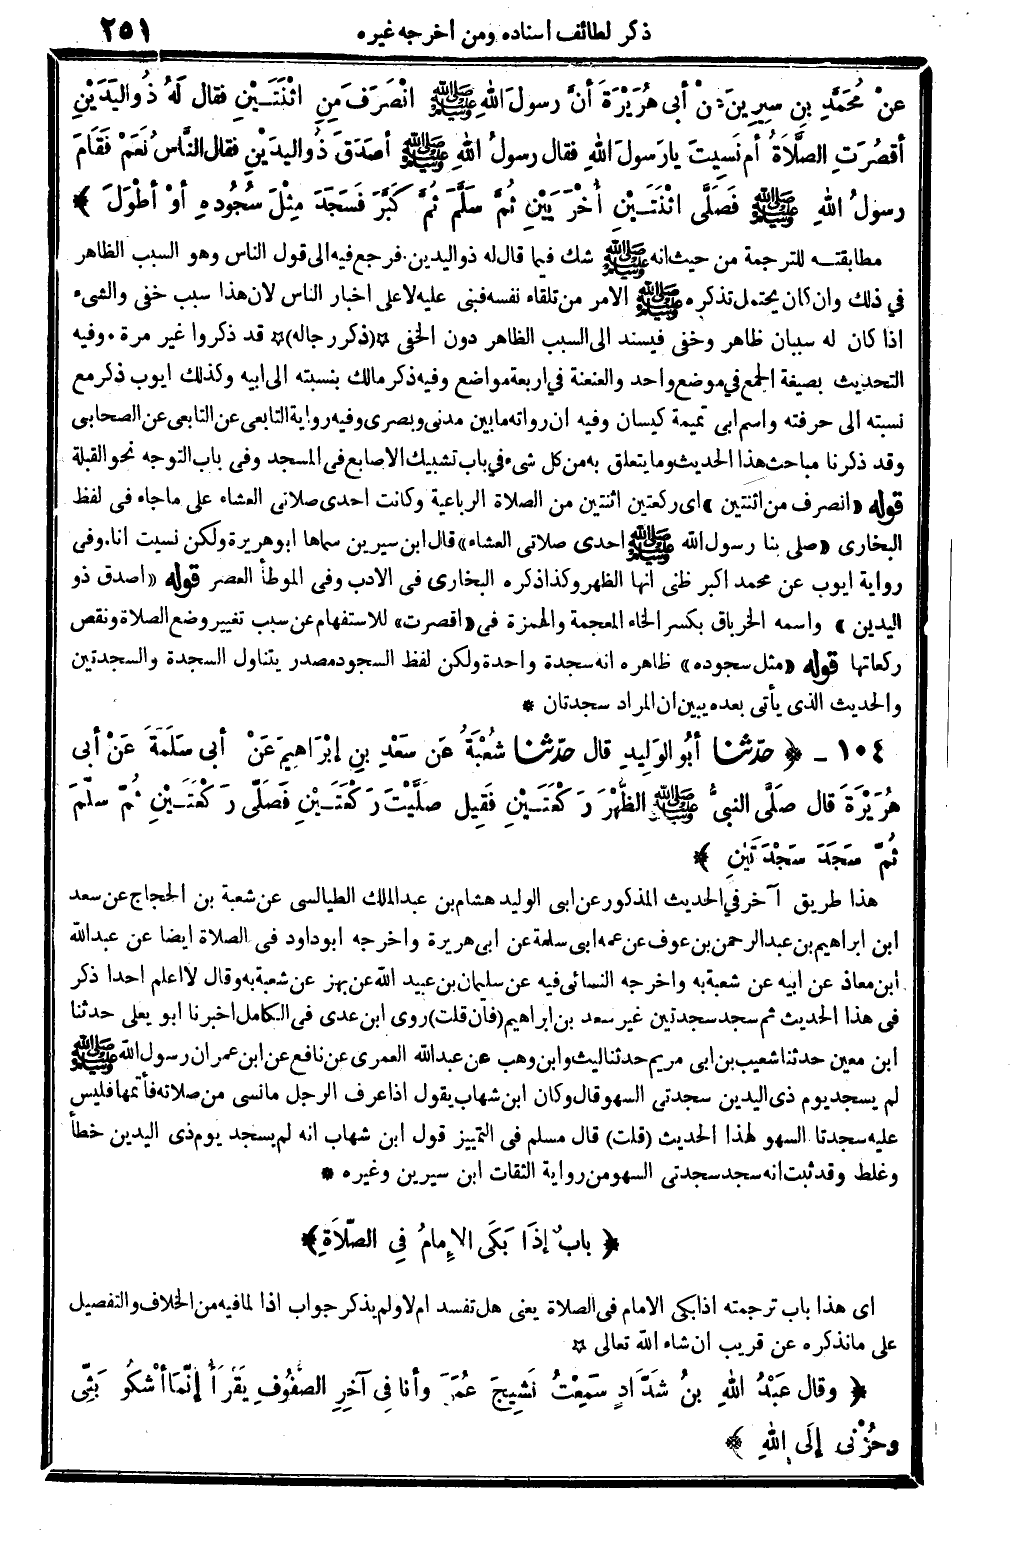 ذكر لطائف اسناده ومن اخرجه غيره ٢٥١
عنْ مُحَمَّدِ بنِ سِيرِينَ عنْ أبى هُرَيْرَةَ أنَّ رسولَ اللهِ ﷺ انْصَرَفَ مِنِ اثْنَتَــيْنِ فقال لَهُ ذُواليَدَيْنِ
أقَصُرَتِ الصَّلَاةُ أم نَسِيتَ يارَسولَ اللهِ فقال رسولُ اللهِ ﷺ أصدَقَ ذُواليدَيْنِ فقال النَّاسُ نُعَمْ فَقَامَ
رسولُ اللهِ ﷺ فَصَلَّى اثْنَتَــيْنِ أُخْرَيَيْنِ ثُمَّ سَلَّمَ ثُمَّ كَبَّرَ فَسَجَدَ مِثْلَ سُجُودِهِ أوْ أطْوَلَ ﴾
مطابقتــه للترجمة من حيث انه ﷺ شك فيما قال له ذواليدين.فرجع فيه الى قول الناس وهو السبب الظاهر
في ذلك وان كان يحتمل تذكره ﷺ الامر من تلقاء نفسه فبنى عليه لاعلى اخبار الناس لان هذا سبب خفى والشىء
اذا كان له سببان ظاهر وخفى فيسند الى السبب الظاهر دون الخفى ☆(ذكر رجاله)☆ قد ذكروا غير مرة . وفيه
التحديث بصيغة الجمع في موضع واحد والعنعنة في اربعة مواضع وفيه ذكر مالك بنسبته الى ابيه وكذلك ايوب ذكر مع
نسبته الى حرفته واسم ابى تميمة كيسان وفيه ان رواته مابين مدنى وبصرى وفيه رواية التابعى عن التابعى عن الصحابى
وقد ذكرنا مباحث هذا الحديث وما يتعلق به من كل شىء في باب تشبيك الاصابع في المسجد وفى باب التوجه نحو القبلة
قوله «انصرف من اثنتين» اى ركعتين اثنتين من الصلاة الرباعية وكانت احدى صلاتى العشاء على ماجاء فى لفظ
البخارى «صلى بنا رسول الله ﷺ احدى صلاتى العشاء» قال ابن سيرين سماها ابوهريرة ولكن نسيت انا . وفى
رواية ايوب عن محمد اكبر ظنى انها الظهر وكذا ذكره البخارى فى الادب وفى الموطأ العصر قوله «اصدق ذو
اليدين» واسمه الخرباق بكسر الخاء المعجمة والهمزة فى «اقصرت» للاستفهام عن سبب تغيير وضع الصلاة ونقص
ركعاتها قوله «مثل سجوده» ظاهره انه سجدة واحدة ولكن لفظ السجود مصدر يتناول السجدة والسجدتين
والحديث الذى يأتى بعده يبين ان المراد سجدتان *
١٠٤ ــ ﴿ حدّثنا أبُو الوَليدِ قال حدّثنا شُعْبَةُ عَن سَعْدِ بنِ إبْرَاهِيمَ عَنْ أبى سَلَمَةَ عَنْ أبى
هُرَيْرَةَ قال صَلَّى النبىُّ ﷺ الظُّهْرَ رَكْعَتَــيْنِ فَقِيلَ صَلَّيْتَ رَكْعَتَــيْنِ فَصَلَّى رَكْعَتَــيْنِ ثُمّ سَلّمَ
ثُمّ سَجَدَ سَجْدَتَيْنِ ﴾
هذا طريق آخر في الحديث المذكور عن ابى الوليد هشام بن عبدالملك الطيالسى عن شعبة بن الحجاج عن سعد
ابن ابراهيم بن عبدالرحمن بن عوف عن عمه ابى سلمة عن ابى هريرة واخرجه ابوداود فى الصلاة ايضا عن عبدالله
ابن معاذ عن ابيه عن شعبة به واخرجه النسائى فيه عن سليمان بن عبيد الله عن بهز عن شعبة به وقال لا اعلم احدا ذكر
فى هذا الحديث ثم سجد سجدتين غير سعد بن ابراهيم (فان قلت) روى ابن عدى فى الكامل اخبرنا ابو يعلى حدثنا
ابن معين حدثنا شعيب بن ابى مريم حدثنا ليث وابن وهب عن عبدالله العمرى عن نافع عن ابن عمر ان رسول الله ﷺ
لم يسجد يوم ذى اليدين سجدتى السهو قال وكان ابن شهاب يقول اذا عرف الرجل مانسى من صلاته فأتمها فليس
عليه سجدتا السهو لهذا الحديث (قلت) قال مسلم فى التمييز قول ابن شهاب انه لم يسجد يوم ذى اليدين خطأ
وغلط وقد ثبت انه سجد سجدتى السهو من رواية الثقات ابن سيرين وغيره *
﴿ بابٌ إذَا بَكَى الإِمامُ فِي الصَّلاَةِ ﴾
اى هذا باب ترجمته اذا بكى الامام فى الصلاة يعنى هل تفسد ام لا ولم يذكر جواب اذا لما فيه من الخلاف والتفصيل
على مانذكره عن قريب ان شاء الله تعالى ☆
﴿ وقال عَبْدُ اللهِ بنُ شَدَّادٍ سَمِعْتُ نَشِيجَ عُمَرَ وأنا فِى آخِرِ الصفُوفِ يَقْرَأُ إنَّمَا أشْكُو بَثِّى
وحُزْنِى إلَى اللهِ ﴾